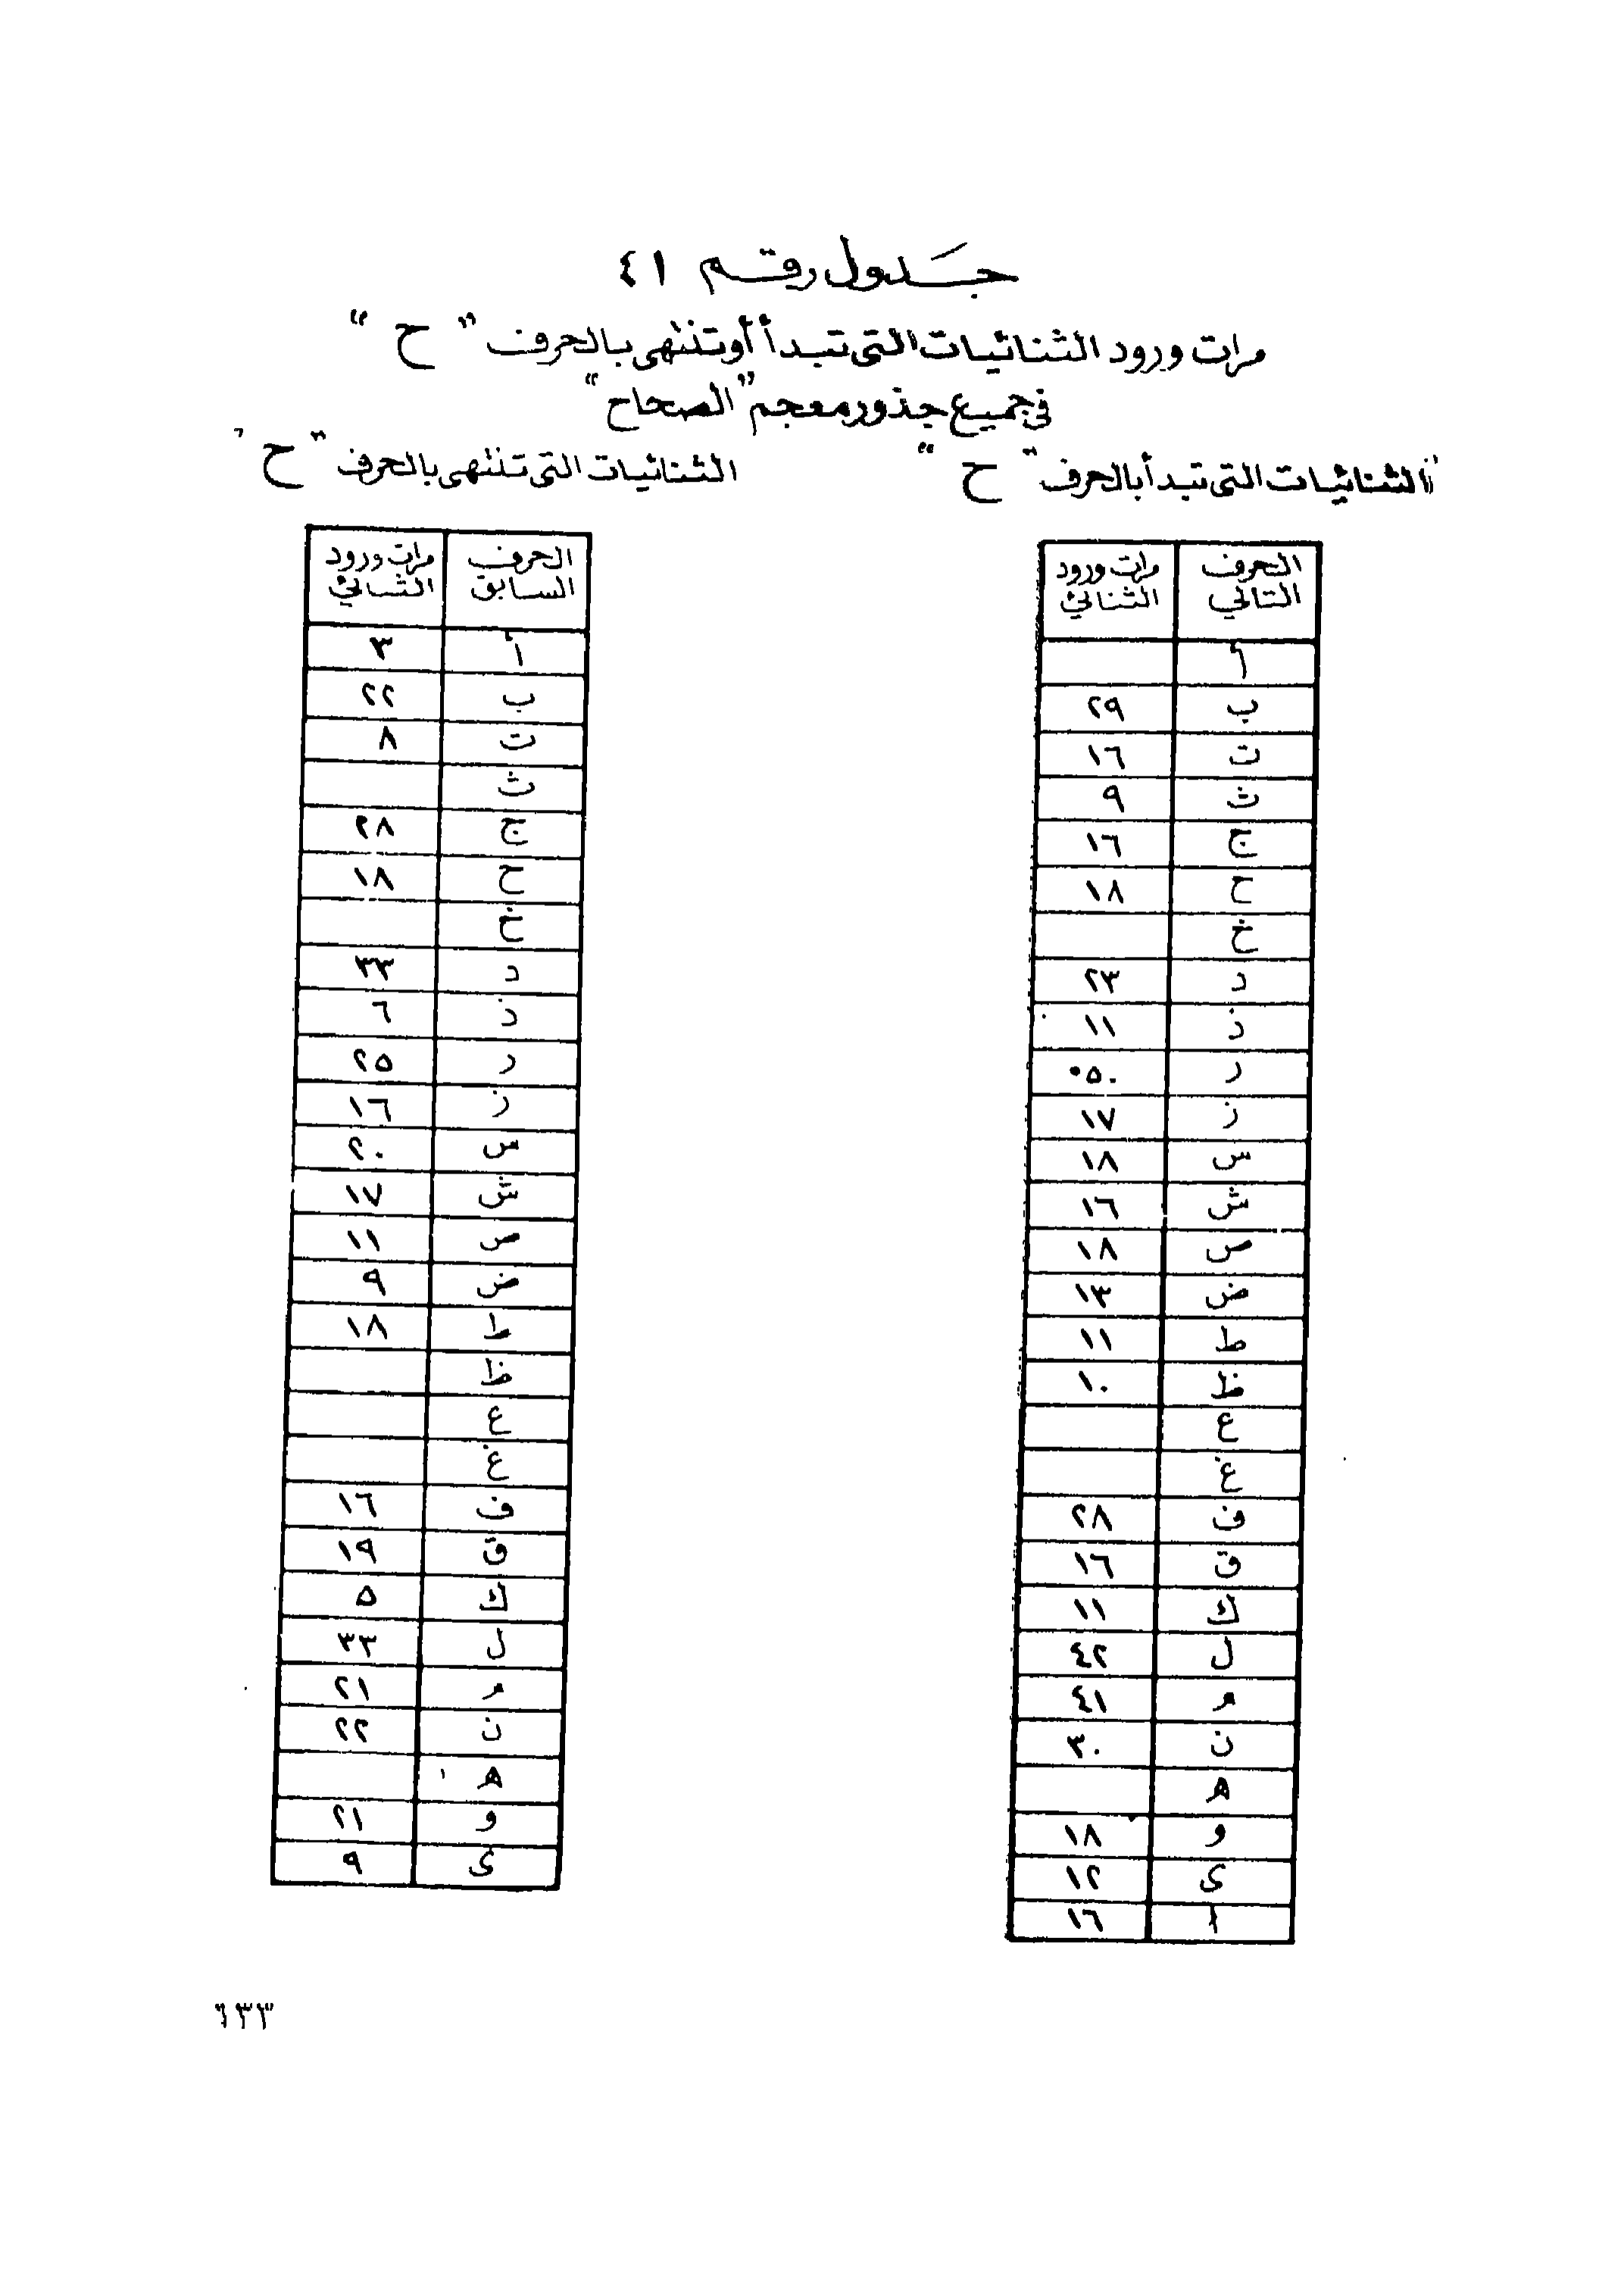 جدول رقم ٤١
مرات ورود الثنائيات التى تبدأ أو تنتهى بالحرف " ح "
فى جميع جذور معجم "الصحاح"
الثنائيات التى تبدأ بالحرف " ح "
الحرف التالي | مرات ورود الثنائي
أ |
ب | ٢٩
ت | ١٦
ث | ٩
ج | ١٦
ح | ١٨
خ |
د | ٢٣
ذ | ١١
ر | ٥٠
ز | ١٧
س | ١٨
ش | ١٦
ص | ١٨
ض | ١٣
ط | ١١
ظ | ١٠
ع |
غ |
ف | ٢٨
ق | ١٦
ك | ١١
ل | ٤٢
م | ٤١
ن | ٣٠
ه |
و | ١٨
ى | ١٢
ا | ١٦
الثنائيات التى تنتهى بالحرف " ح "
الحرف السابق | مرات ورود الثنائي
أ | ٣
ب | ٢٢
ت | ٨
ث |
ج | ٢٨
ح | ١٨
خ |
د | ٣٣
ذ | ٦
ر | ٢٥
ز | ١٦
س | ٢٠
ش | ١٧
ص | ١١
ض | ٩
ط | ١٨
ظ |
ع |
غ |
ف | ١٦
ق | ١٩
ك | ٥
ل | ٣٣
م | ٢١
ن | ٢٢
ه |
و | ٢١
ى | ٩
٦٣٣